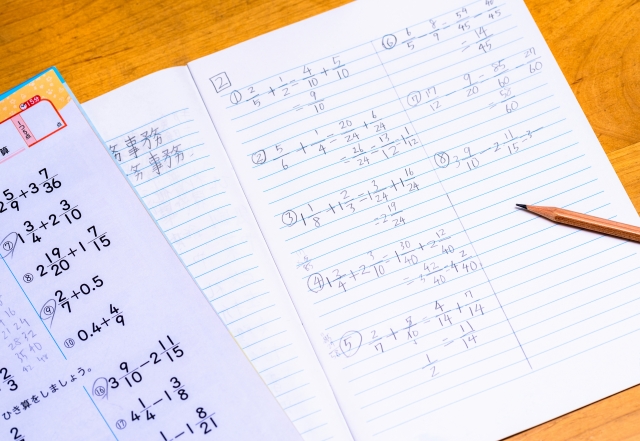 算
2 5/9 + 3 7/36
⑦ 1 3/4 + 2 3/10
⑧ 2 19/20 + 1 7/15
⑨ 2/7 + 0.5
⑩ 0.4 + 4/9
ひき算をしましょう。
⑯ 3 9/10 − 2 11/15
⑰ 4 1/4 − 1 3/8
− 1 8/21
務事務
務事務
2
① 2/5 + 1/2 = 4/10 + 5/10
= 9/10
② 5/6 + 1/4 = 20/24 + 6/24
= 26/24 = 13/12 = 1 1/12
③ 1 1/8 + 1 2/3 = 1 3/24 + 1 16/24
= 2 19/24
④ 1 3/4 + 2 3/10 = 1 30/40 + 2 12/40
= 3 42/40 = 4 2/40
⑤ 2/7 + 5/10 = 4/14 + 7/14
= 11/14
1/2
⑥ 6/5 − 8/9 = 54/45 − 40/45
= 14/45
⑦ 17/12 − 9/20 = 85/60 − 27/60
= 58/60
⑧ 3 9/10 − 2 11/15 = 3